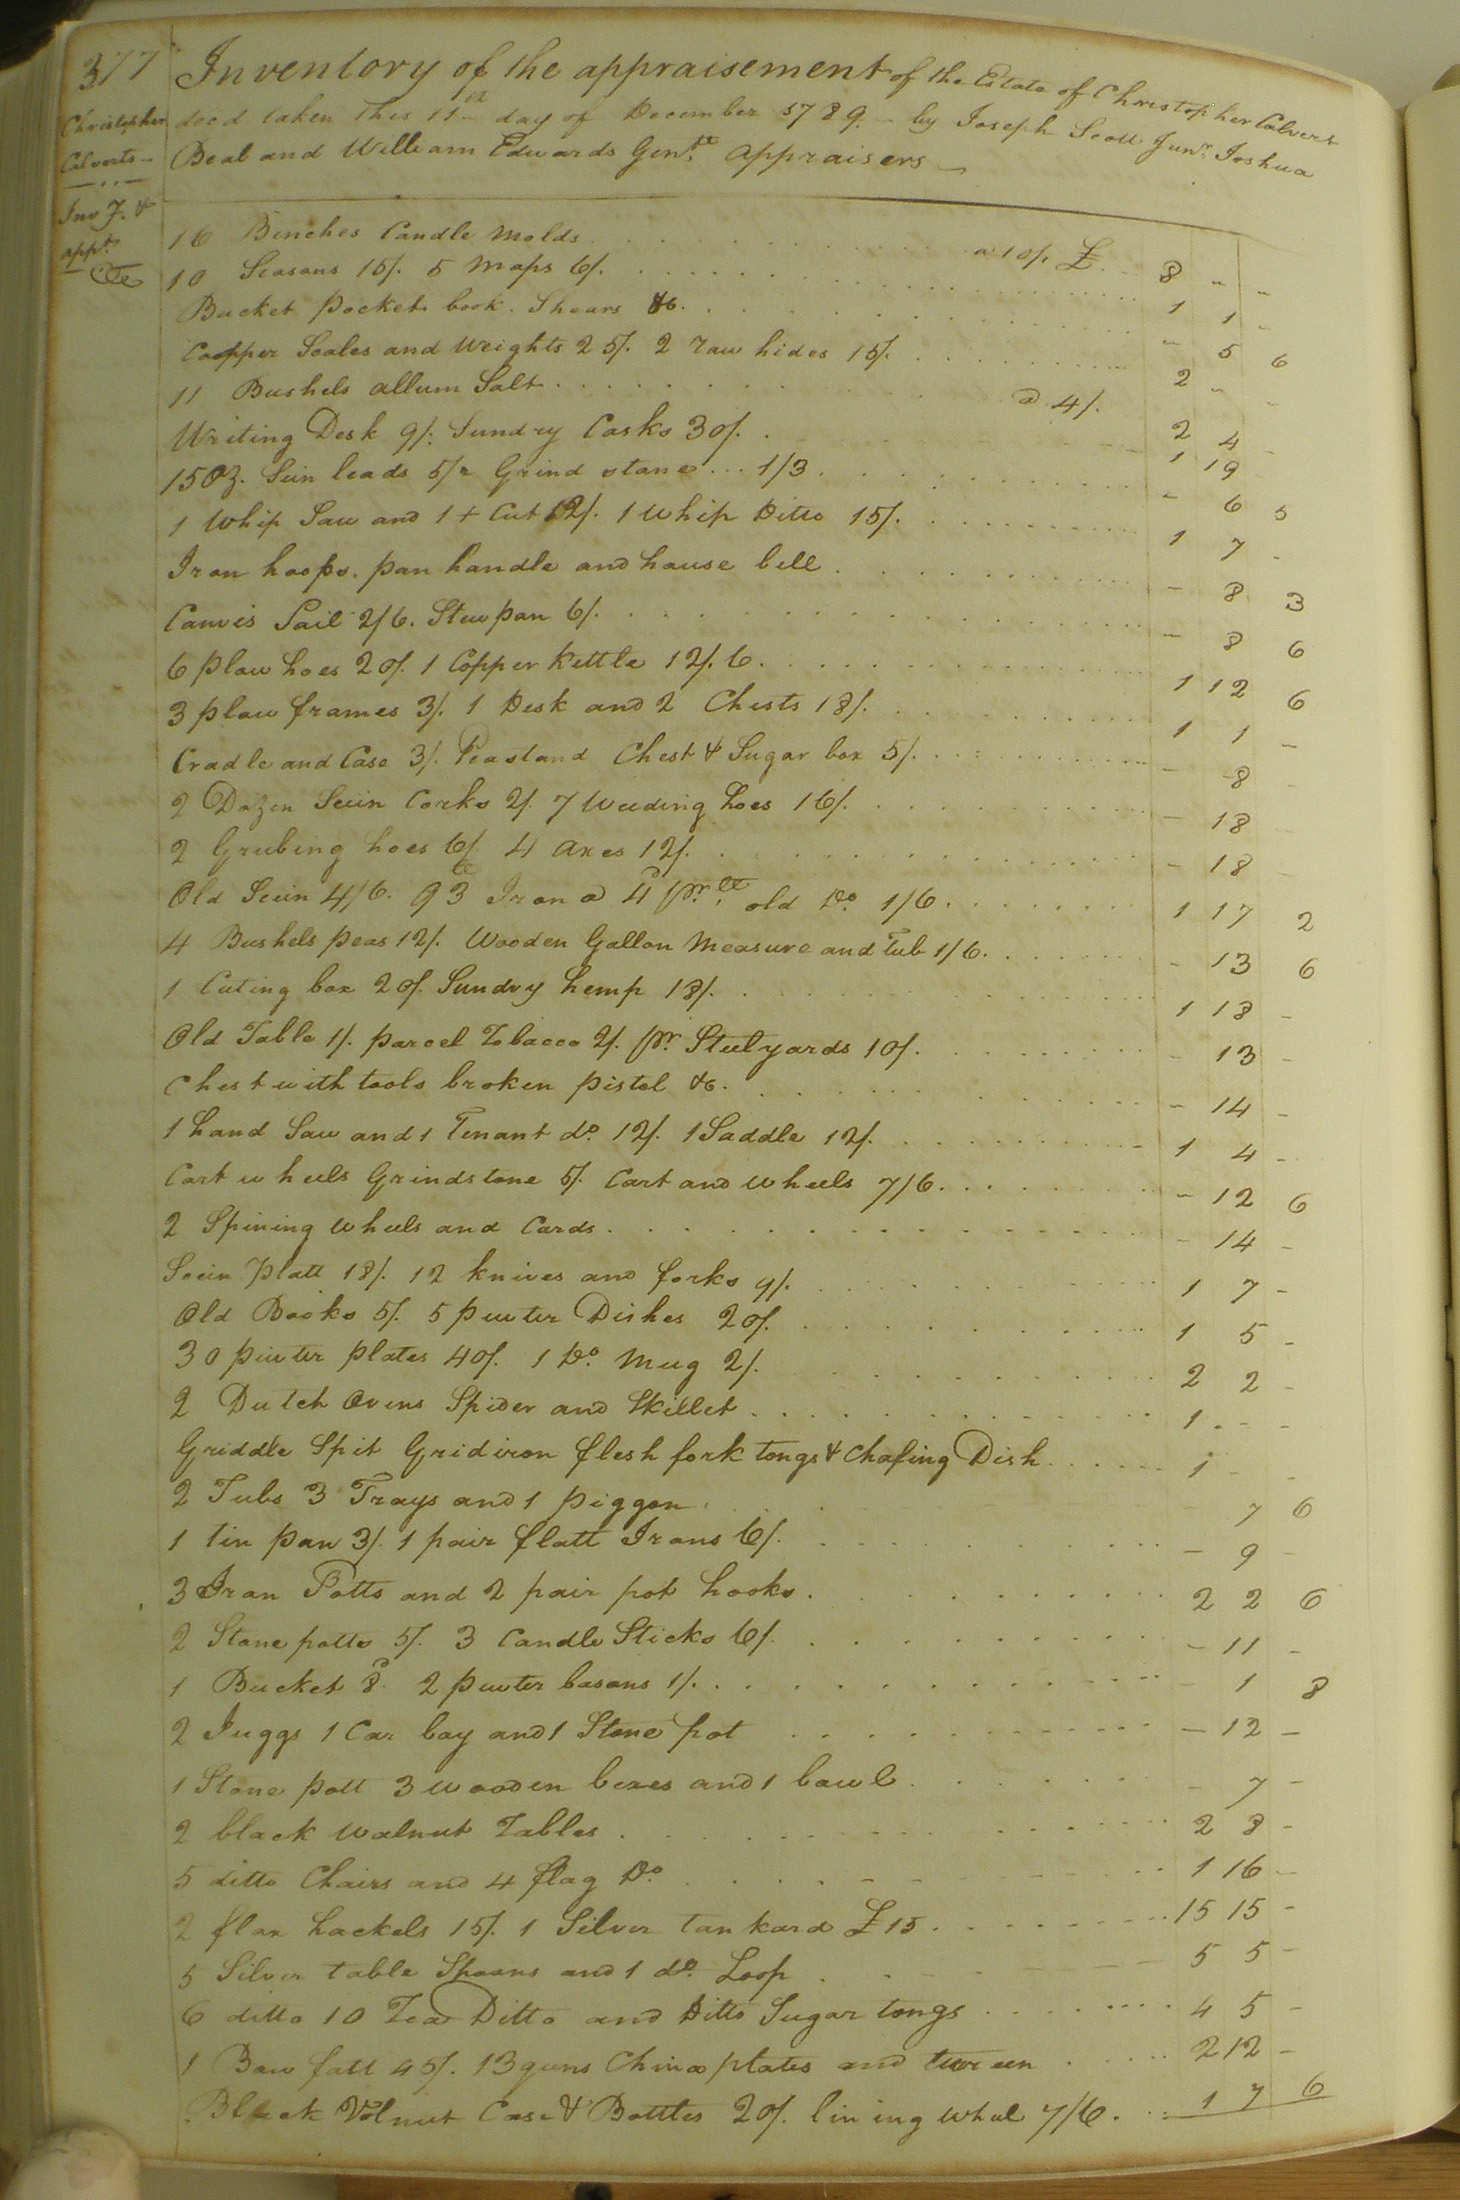 377 Inventory of the appraisement of the Estate of Christopher Calvert
Christopher Calverts Inv J. & appt
decd taken this 11th day of December 1789 - by Joseph Scott Junr Joshua
Beal and William Edwards Gente appraisers
16 Benches Candle Molds a 10/. £ 8 - -
10 Seasons 15/. 5 Maps 6/. 1 1 -
Bucket Pocket book. Shears &c. - 5 6
Copper Scales and Weights 25/. 2 raw hides 15/. 2 - -
11 Bushels allum Salt @ 4/. 2 4 -
Writing Desk 9/. Sundry Casks 30/. 1 19
15 oz. Sein leads 5/2 Grind stone 1/3 - 6 5
1 Whip Saw and 1 + Cut 12/. 1 Whip Ditto 15/. 1 7 -
Iron hoops. pan handle and house bell - 8 3
Canvis Sail 2/6. Stew pan 6/. - 8 6
6 plow hoes 20/. 1 Copper kettle 12/.6. 1 12 6
3 plow frames 3/. 1 Desk and 2 Chests 18/. 1 1 -
Cradle and Case 3/. Teastand Chest & Sugar box 5/. - 8
2 Dozen Sein Corks 2/. 7 Weeding hoes 16/. - 18
2 Grubing hoes 6/ 4 axes 12/. - 18
Old Sein 4/6. 93 lb Iron a 4d pr. lb old Do. 1/6. 1 17 2
4 Bushels peas 12/. Wooden Gallon Measure and Tub 1/6. - 13 6
1 Cuting box 20/. Sundry hemp 18/. 1 18 -
Old Table 1/. parcel Tobacco 2/. pr. Steelyards 10/. - 13 -
Chest with tools broken pistol &c. - 14 -
1 hand Saw and 1 Tenant do. 12/. 1 Saddle 12/. 1 4 -
Cart wheels Grindstone 5/. Cart and wheels 7/6. - 12 6
2 Spining wheels and Cards - 14 -
Sein Platt 18/. 12 knives and forks 9/. 1 7 -
Old Books 5/. 5 pewter Dishes 20/. 1 5 -
30 pewter plates 40/. 1 Do. Mug 2/. 2 2 -
2 Dutch Ovens Spider and Skillet 1 - -
Griddle Spit Gridiron flesh fork tongs & Chafing Dish 1 - -
2 Tubs 3 Trays and 1 piggon - 7 6
1 tin pan 3/. 1 pair flatt Irons 6/. - 9 -
3 Iron Potts and 2 pair pot hooks 2 2 6
2 Stone potts 5/. 3 Candle Sticks 6/. - 11 -
1 Bucket 8d. 2 pewter basons 1/. - 1 8
2 Juggs 1 Car boy and 1 Stone pot - 12 -
1 Stone pott 3 wooden boxes and 1 bowl - 7 -
2 black walnut Tables 2 8 -
5 ditto Chairs and 4 flag Do. 1 16 -
2 flax hackels 15/. 1 Silver tankard £15 15 15 -
5 Silver table Spoons and 1 do. Loop 5 5 -
6 ditto 10 Tea Ditto and Ditto Sugar tongs 4 5 -
1 Bow fatt 45/. 13 guns China plates and tureen 2 12 -
Black Volnut Case & Bottles 20/. lining wheel 7/6. 1 7 6